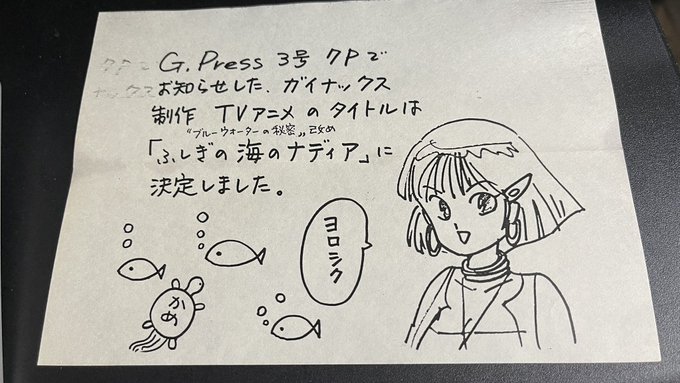 G.Press 3号 7Pで
お知らせした、ガイナックス
制作 TVアニメ の タイトルは
"ブルーウォーターの秘密" 改め
「ふしぎの海のナディア」に
決定しました。
ヨロシク
かめ